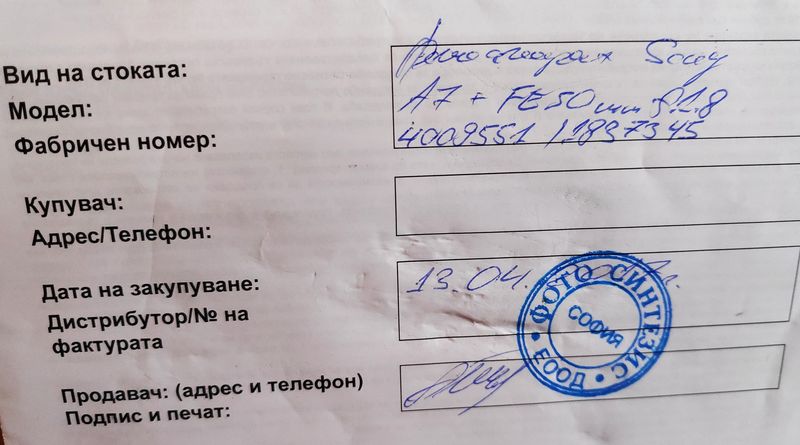 Вид на стоката: Фотоапарат Sony
Модел: A7 + FE50mm f.1.8
Фабричен номер: 4009551 / 1837345
Купувач:
Адрес/Телефон:
Дата на закупуване: 13.04.
Дистрибутор/№ на
фактурата
ФОТО СИНТЕЗИС ЕООД
СОФИЯ
Продавач: (адрес и телефон)
Подпис и печат: